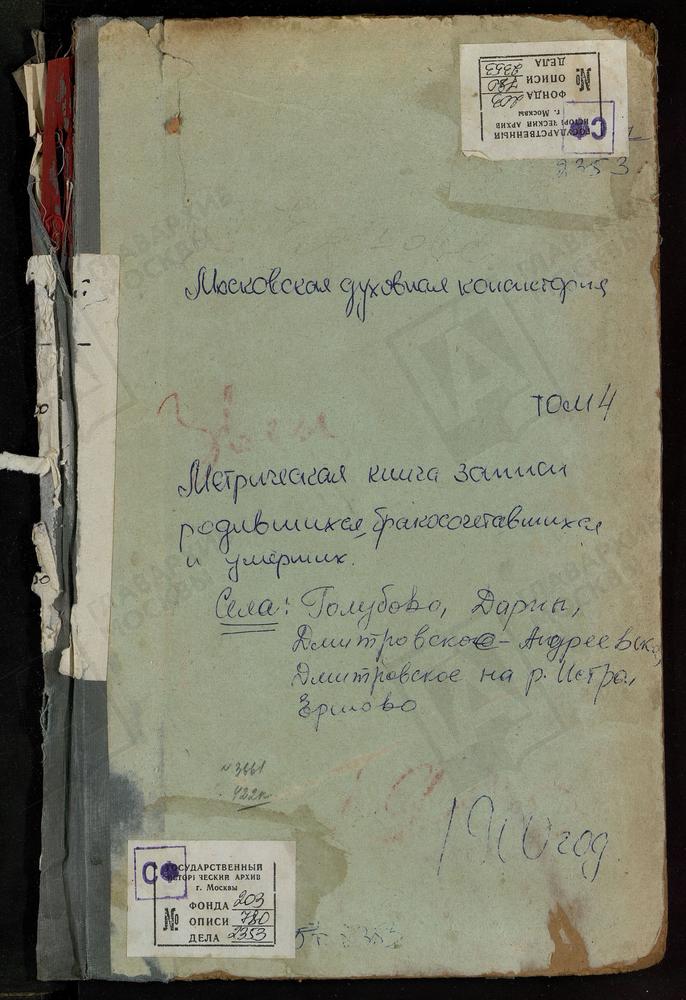 ГОСУДАРСТВЕННЫЙ
ИСТОРИЧЕСКИЙ АРХИВ
г. Москвы
№
ФОНДА 203
ОПИСИ 780
ДЕЛА 2353
СФ
2353
Московская духовная консистория
том 4
Метрическая книга записи
родившихся, бракосочетавшихся
и умерших.
Села: Голубово, Дарны,
Дмитровское-Андреевское,
Дмитровское на р. Истра,
Ершово
№3661
422л
1910 год
СФ
ГОСУДАРСТВЕННЫЙ
ИСТОРИЧЕСКИЙ АРХИВ
г. Москвы
№
ФОНДА 203
ОПИСИ 780
ДЕЛА 2353
ГЛАВАРХИВ
МОСКВЫ